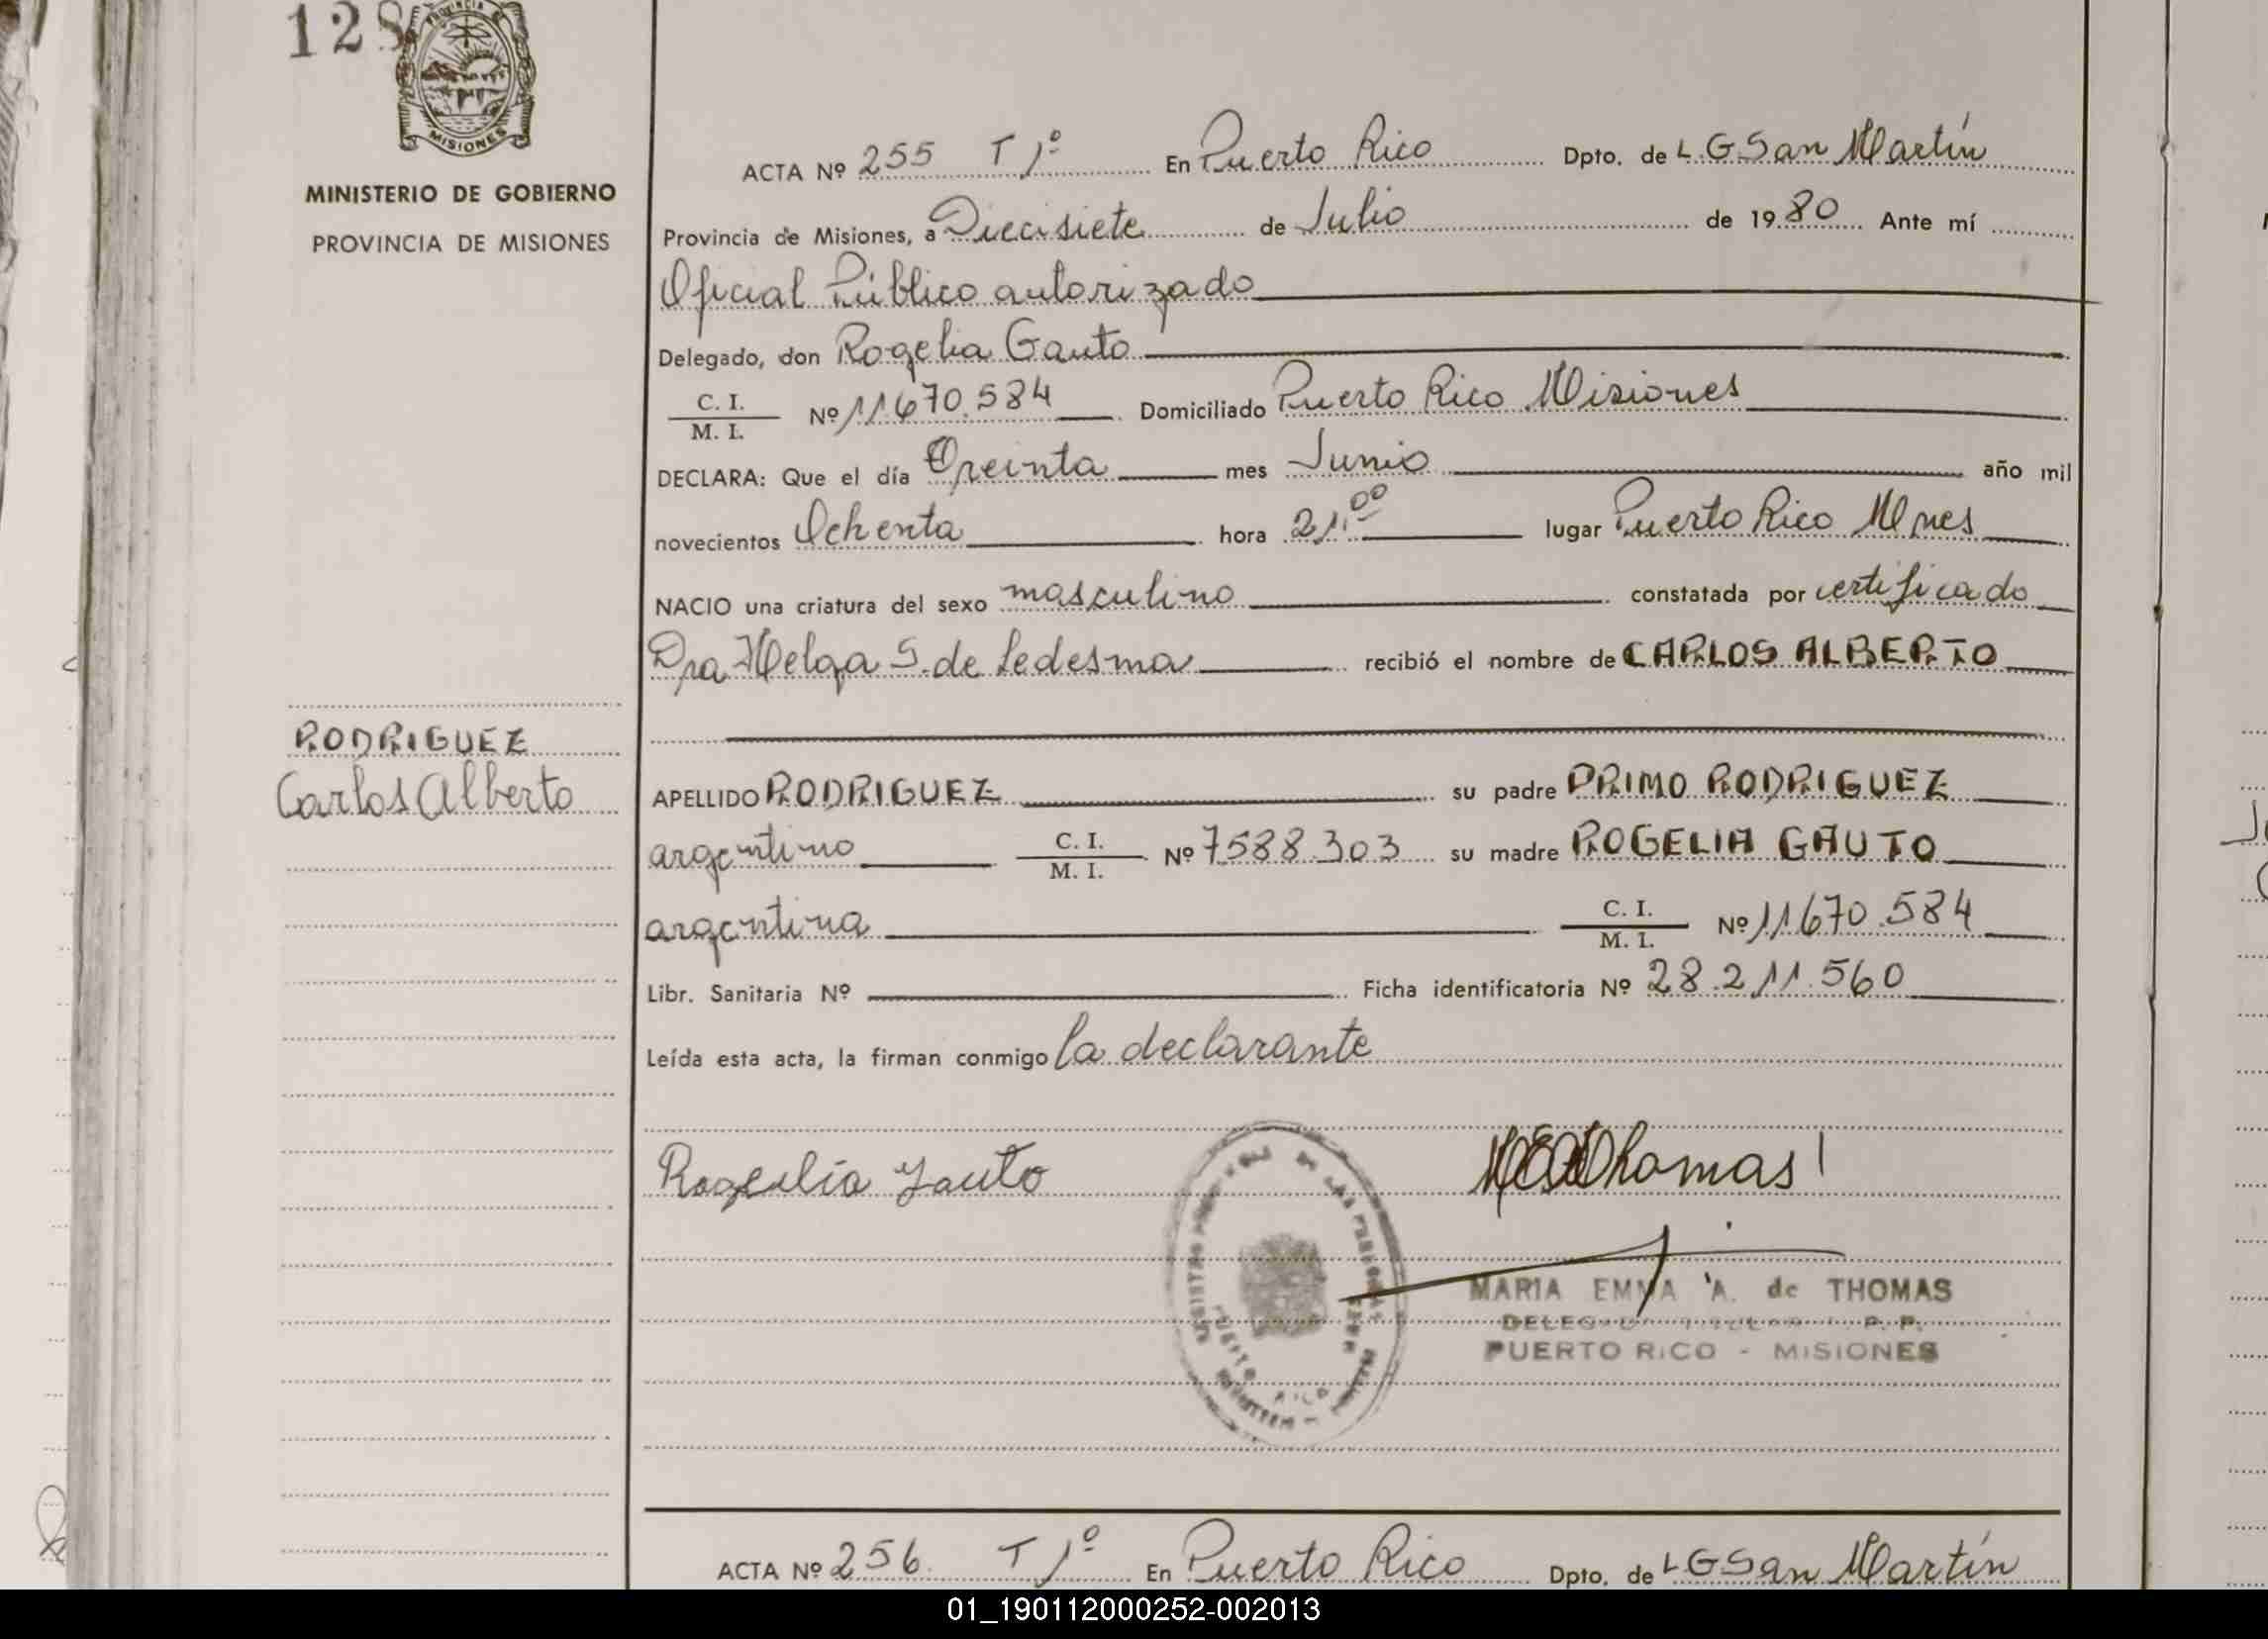 128
PROVINCIA DE
MISIONES
MINISTERIO DE GOBIERNO
PROVINCIA DE MISIONES
ACTA Nº 255 T 1º En Puerto Rico Dpto. de L.G San Martín
Provincia de Misiones, a Diecisiete de Julio de 1980 Ante mí
Oficial Público autorizado
Delegado, don Rogelia Gauto
C. I.
M. I. Nº 11670.584 Domiciliado Puerto Rico Misiones
DECLARA: Que el día Treinta mes Junio año mil
novecientos Ochenta hora 21.00 lugar Puerto Rico Mnes
NACIO una criatura del sexo masculino constatada por certificado
Dra Helga S. de Ledesma recibió el nombre de CARLOS ALBERTO
RODRIGUEZ
Carlos Alberto
APELLIDO RODRIGUEZ su padre PRIMO RODRIGUEZ
argentino C. I. M. I. Nº 7588.303 su madre ROGELIA GAUTO
argentina C. I. M. I. Nº 11670.584
Libr. Sanitaria Nº Ficha identificatoria Nº 28.211.560
Leída esta acta, la firman conmigo la declarante
Rogelia Gauto Thomas
MARIA EMMA A. de THOMAS
PUERTO RICO - MISIONES
PUERTO RICO
ACTA Nº 256. T 1º En Puerto Rico Dpto. de L G San Martín
01_190112000252-002013